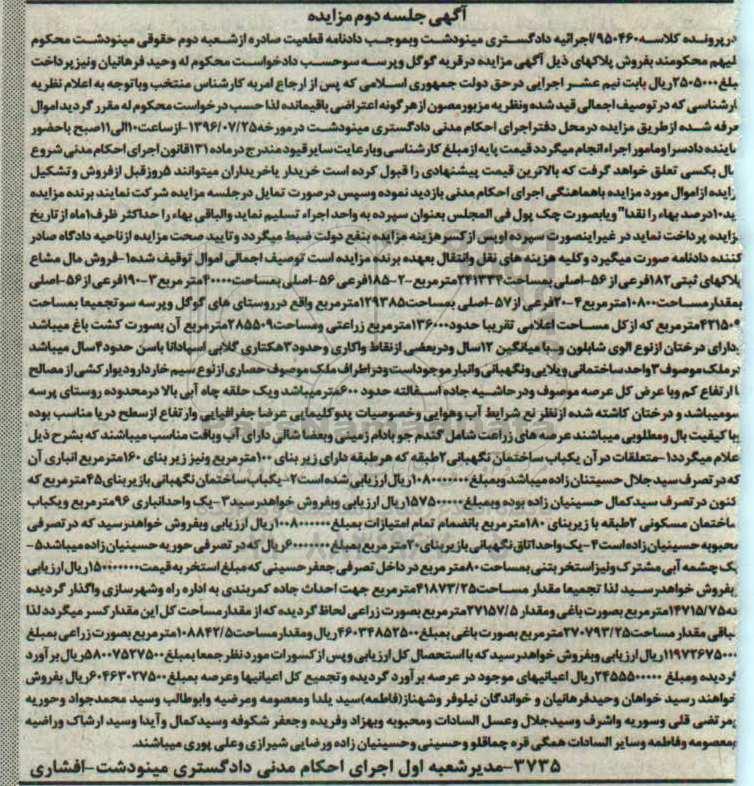 آگهی جلسه دوم مزایده
درپرونده کلاسه۹۵۰۴۶۰/اجرائیه دادگستری مینودشت وبموجب دادنامه قطعیت صادره ازشعبه دوم حقوقی مینودشت محکوم
علیهم محکومند بفروش پلاکهای ذیل آگهی مزایده درقریه گوگل وپرسه سوحسب دادخواست محکوم له وحید فرهانیان ونیز پرداخت
مبلغ۲۵۰۵۰۰۰ریال بابت نیم عشر اجرایی درحق دولت جمهوری اسلامی که پس از ارجاع امربه کارشناس منتخب وباتوجه به اعلام نظریه
کارشناسی که در توصیف اجمالی قید شده ونظریه مزبورمصون ازهرگونه اعتراضی باقیمانده لذا حسب درخواست محکوم له مقرر گردید اموال
معرفه شده ازطریق مزایده درمحل دفتراجرای احکام مدنی دادگستری مینودشت درمورخه۱۳۹۶/۰۷/۲۵-ازساعت۱۰الی۱۱صبح باحضور
نماینده دادسرا ومامور اجراء انجام میگردد قیمت پایه ازمبلغ کارشناسی وبارعایت سایرقیود مندرج درماده۱۳۱قانون اجرای احکام مدنی شروع
مال بکسی تعلق خواهد گرفت که بالاترین قیمت پیشنهادی را قبول کرده است خریدار یاخریداران میتوانند ۵روزقبل ازفروش وتشکیل
مزایده ازاموال مورد مزایده باهماهنگی اجرای احکام مدنی بازدید نموده وسپس درصورت تمایل درجلسه مزایده شرکت نمایند برنده مزایده
باید۱۰درصد بهاء را نقدا" ویابصورت چک پول فی المجلس بعنوان سپرده به واحد اجراء تسلیم نماید والباقی بهاء را حداکثر ظرف۱ماه از تاریخ
مزایده پرداخت نماید در غیراینصورت سپرده اوپس ازکسرهزینه مزایده بنفع دولت ضبط میگردد وتایید صحت مزایده ازناحیه دادگاه صادر
کننده دادنامه صورت میگیرد وکلیه هزینه های نقل وانتقال بعهده برنده مزایده است توصیف اجمالی اموال توقیف شده۱-فروش مال مشاع
پلاکهای ثبتی۱۸۲فرعی از۵۶-اصلی بمساحت۲۴۱۳۳۴مترمربع-۲-۱۸۵فرعی ۵۶-اصلی بمساحت۴۰۰۰۰متر مربع۳-۱۹۰فرعی از۵۶-اصلی
بمقدارمساحت۱۰۸۰۰مترمربع۴-۲۰فرعی از۵۷-اصلی بمساحت۱۲۹۳۸۵مترمربع واقع درروستای های گوگل وپرسه سوتجمیعا بمساحت
۴۲۱۵۰۹مترمربع که ازکل مساحت اعلامی تقریبا حدود۱۳۶۰۰۰مترمربع زراعتی ومساحت۲۸۵۵۰۹مترمربع آن بصورت کشت باغ میباشد
ودارای درختان ازنوع الوی شابلون وبا میانگین ۱۲سال ودربعضی ازنقاط واکاری وحدود۳هکتاری گلابی اسپادانا باسن حدود۴سال میباشد
درملک موصوف۳واحد ساختمانی ویلایی ونگهبانی وانبار موجوداست ودراطراف ملک موصوف حصاری ازنوع سیم خاردارودیوارکشی از مصالح
با ارتفاع کم وبا عرض کل عرصه موصوف ودرحاشیه جاده اسفالته حدود ۶۰۰مترمیباشد ویک حلقه چاه آبی بالا درمحدوده روستای پرسه
سومیباشد و درختان کاشته شده ازنظر نع شرایط آب وهوایی وخصوصیات پدوکلیمایی عرضا جغرافیایی وارتفاع ازسطح دریا مناسب بوده
وبا کیفیت بال ومطلوبی میباشند عرصه های زراعت شامل گندم جو بادام زمینی وبعضا شالی دارای آب وبافت مناسب میباشند که بشرح ذیل
اعلام میگردد۱-متعلقات در آن یکباب ساختمان نگهبانی۲طبقه که هرطبقه دارای زیر بنای ۱۰۰مترمربع ونیز زیر بنای ۱۶۰مترمربع انباری آن
که در تصرف سیدجلال حسینیان زاده میباشد وبمبلغ۱۰۸۰۰۰۰۰۰۰ریال ارزیابی شده است۲-یکباب ساختمان نگهبانی بازیربنای۴۵مترمربع که
کنون درتصرف سیدکمال حسینیان زاده بوده وبمبلغ۱۵۷۵۰۰۰۰۰ریال ارزیابی وبفروش خواهد رسید۳-یک واحدانباری ۹۶مترمربع ویکباب
ساختمان مسکونی ۲طبقه با زیربنای ۱۸۰مترمربع بانضمام تمام امتیازات بمبلغ۱۰۰۸۰۰۰۰۰۰ریال ارزیابی وبفروش خواهدرسید که درتصرفی
محبوبه حسینیان زاده است۴-یک واحد اتاق نگهبانی بازیربنای۲۰متر مربع بمبلغ۶۰۰۰۰۰۰۰ریال که در تصرفی حوریه حسینیان زاده میباشد۵-
یک چشمه آبی مشترک ونیزاستخر بتنی بمساحت۸۰متر مربع در داخل تصرفی جعفرحسینی که مبلغ استخر به قیمت۱۵۰۰۰۰۰۰۰ریال ارزیابی
وبفروش خواهدرسید لذا تجمیعا مقدار مساحت۴۱۸۷۳/۲۵مترمربع جهت احداث جاده کمربندی به اداره راه وشهرسازی واگذار گردیده
که۱۴۷۱۵/۷۵مترمربع بصورت باغی ومقدار ۲۷۱۵۷/۵مترمربع بصورت زراعی لحاظ گردیده که از مقدار مساحت کل این مقدارکسر میگردد لذا
مابقی مقدار مساحت۲۷۰۷۹۳/۲۵مترمربع بصورت باغی بمبلغ۴۶۰۳۴۸۵۲۵۰۰ریال ومقدارمساحت۱۰۸۸۴۲/۵مترمربع بصورت زراعی بمبلغ
۱۱۹۷۲۶۷۵۰۰۰ریال ارزیابی وبفروش خواهدرسید که بااستحصال کل ارزیابی وپس ازکسورات مورد نظرجمعا بمبلغ۵۸۰۰۷۵۲۷۵۰۰ریال برآورد
گردیده ومبلغ ۲۴۵۵۵۰۰۰۰۰ریال اعیانیهای موجود در عرصه برآورد گردیده وتجمیع کل اعیانیها وعرصه بمبلغ۶۰۴۶۳۰۲۷۵۰۰ریال بفروش
خواهند رسید خواهان وحیدفرهانیان و خواندگان نیلوفر وشهناز(فاطمه)سید یلدا ومعصومه ومرضیه وابوطالب وسید محمدجواد وحوریه
ومرتضی قلی وسوریه واشرف وسیدجلال وعسل السادات ومحبوبه وبهزاد وفریده وجعفر شکوفه وسیدکمال وآیدا وسید ارشاک وراضیه
ومعصومه وفاطمه وسایر السادات همگی قره چماقلو وحسینی وحسینیان زاده ورضایی شیرازی وعلی پوری میباشند.
۳۷۳۵-مدیرشعبه اول اجرای احکام مدنی دادگستری مینودشت-افشاری